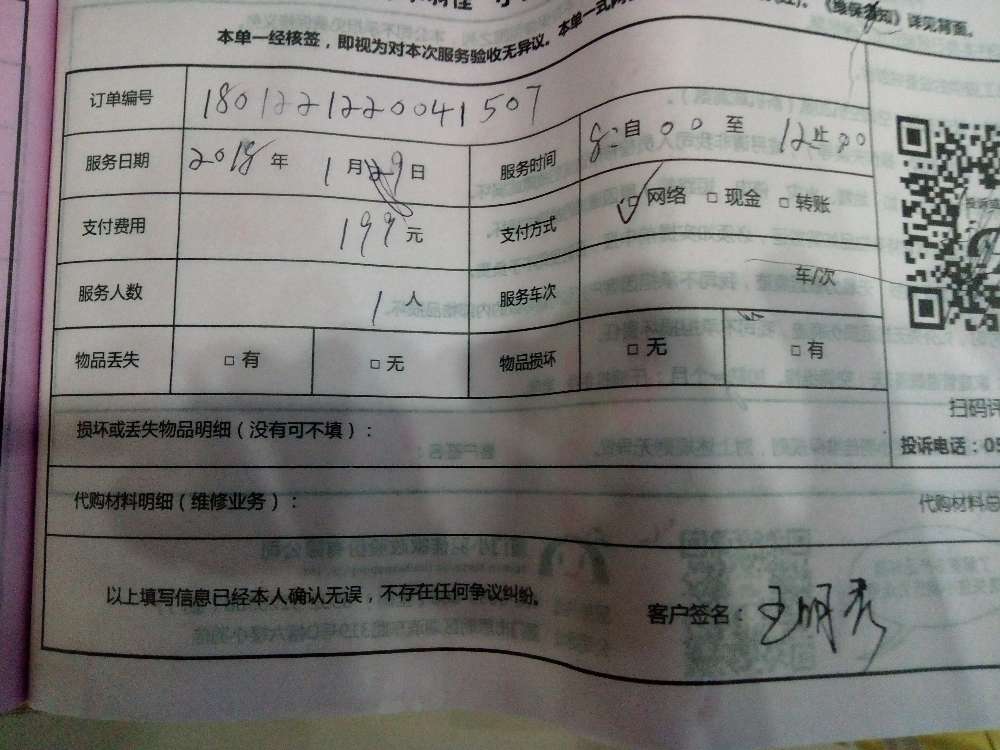 《维保须知》详见背面。
本单一经核签，即视为对本次服务验收无异议。本单一式两
订单编号 180122122004 1507
服务日期 2018年 1月29日 服务时间 8:自 00 至 12:00
支付费用 199元 支付方式 ☑网络 □现金 □转账
服务人数 1人 服务车次 车/次
物品丢失 □有 □无 物品损坏 □无 □有
损坏或丢失物品明细（没有可不填）：
扫码
投诉电话：05
代购材料明细（维修业务）：
代购材料总
以上填写信息已经本人确认无误，不存在任何争议纠纷。
客户签名：王明秀